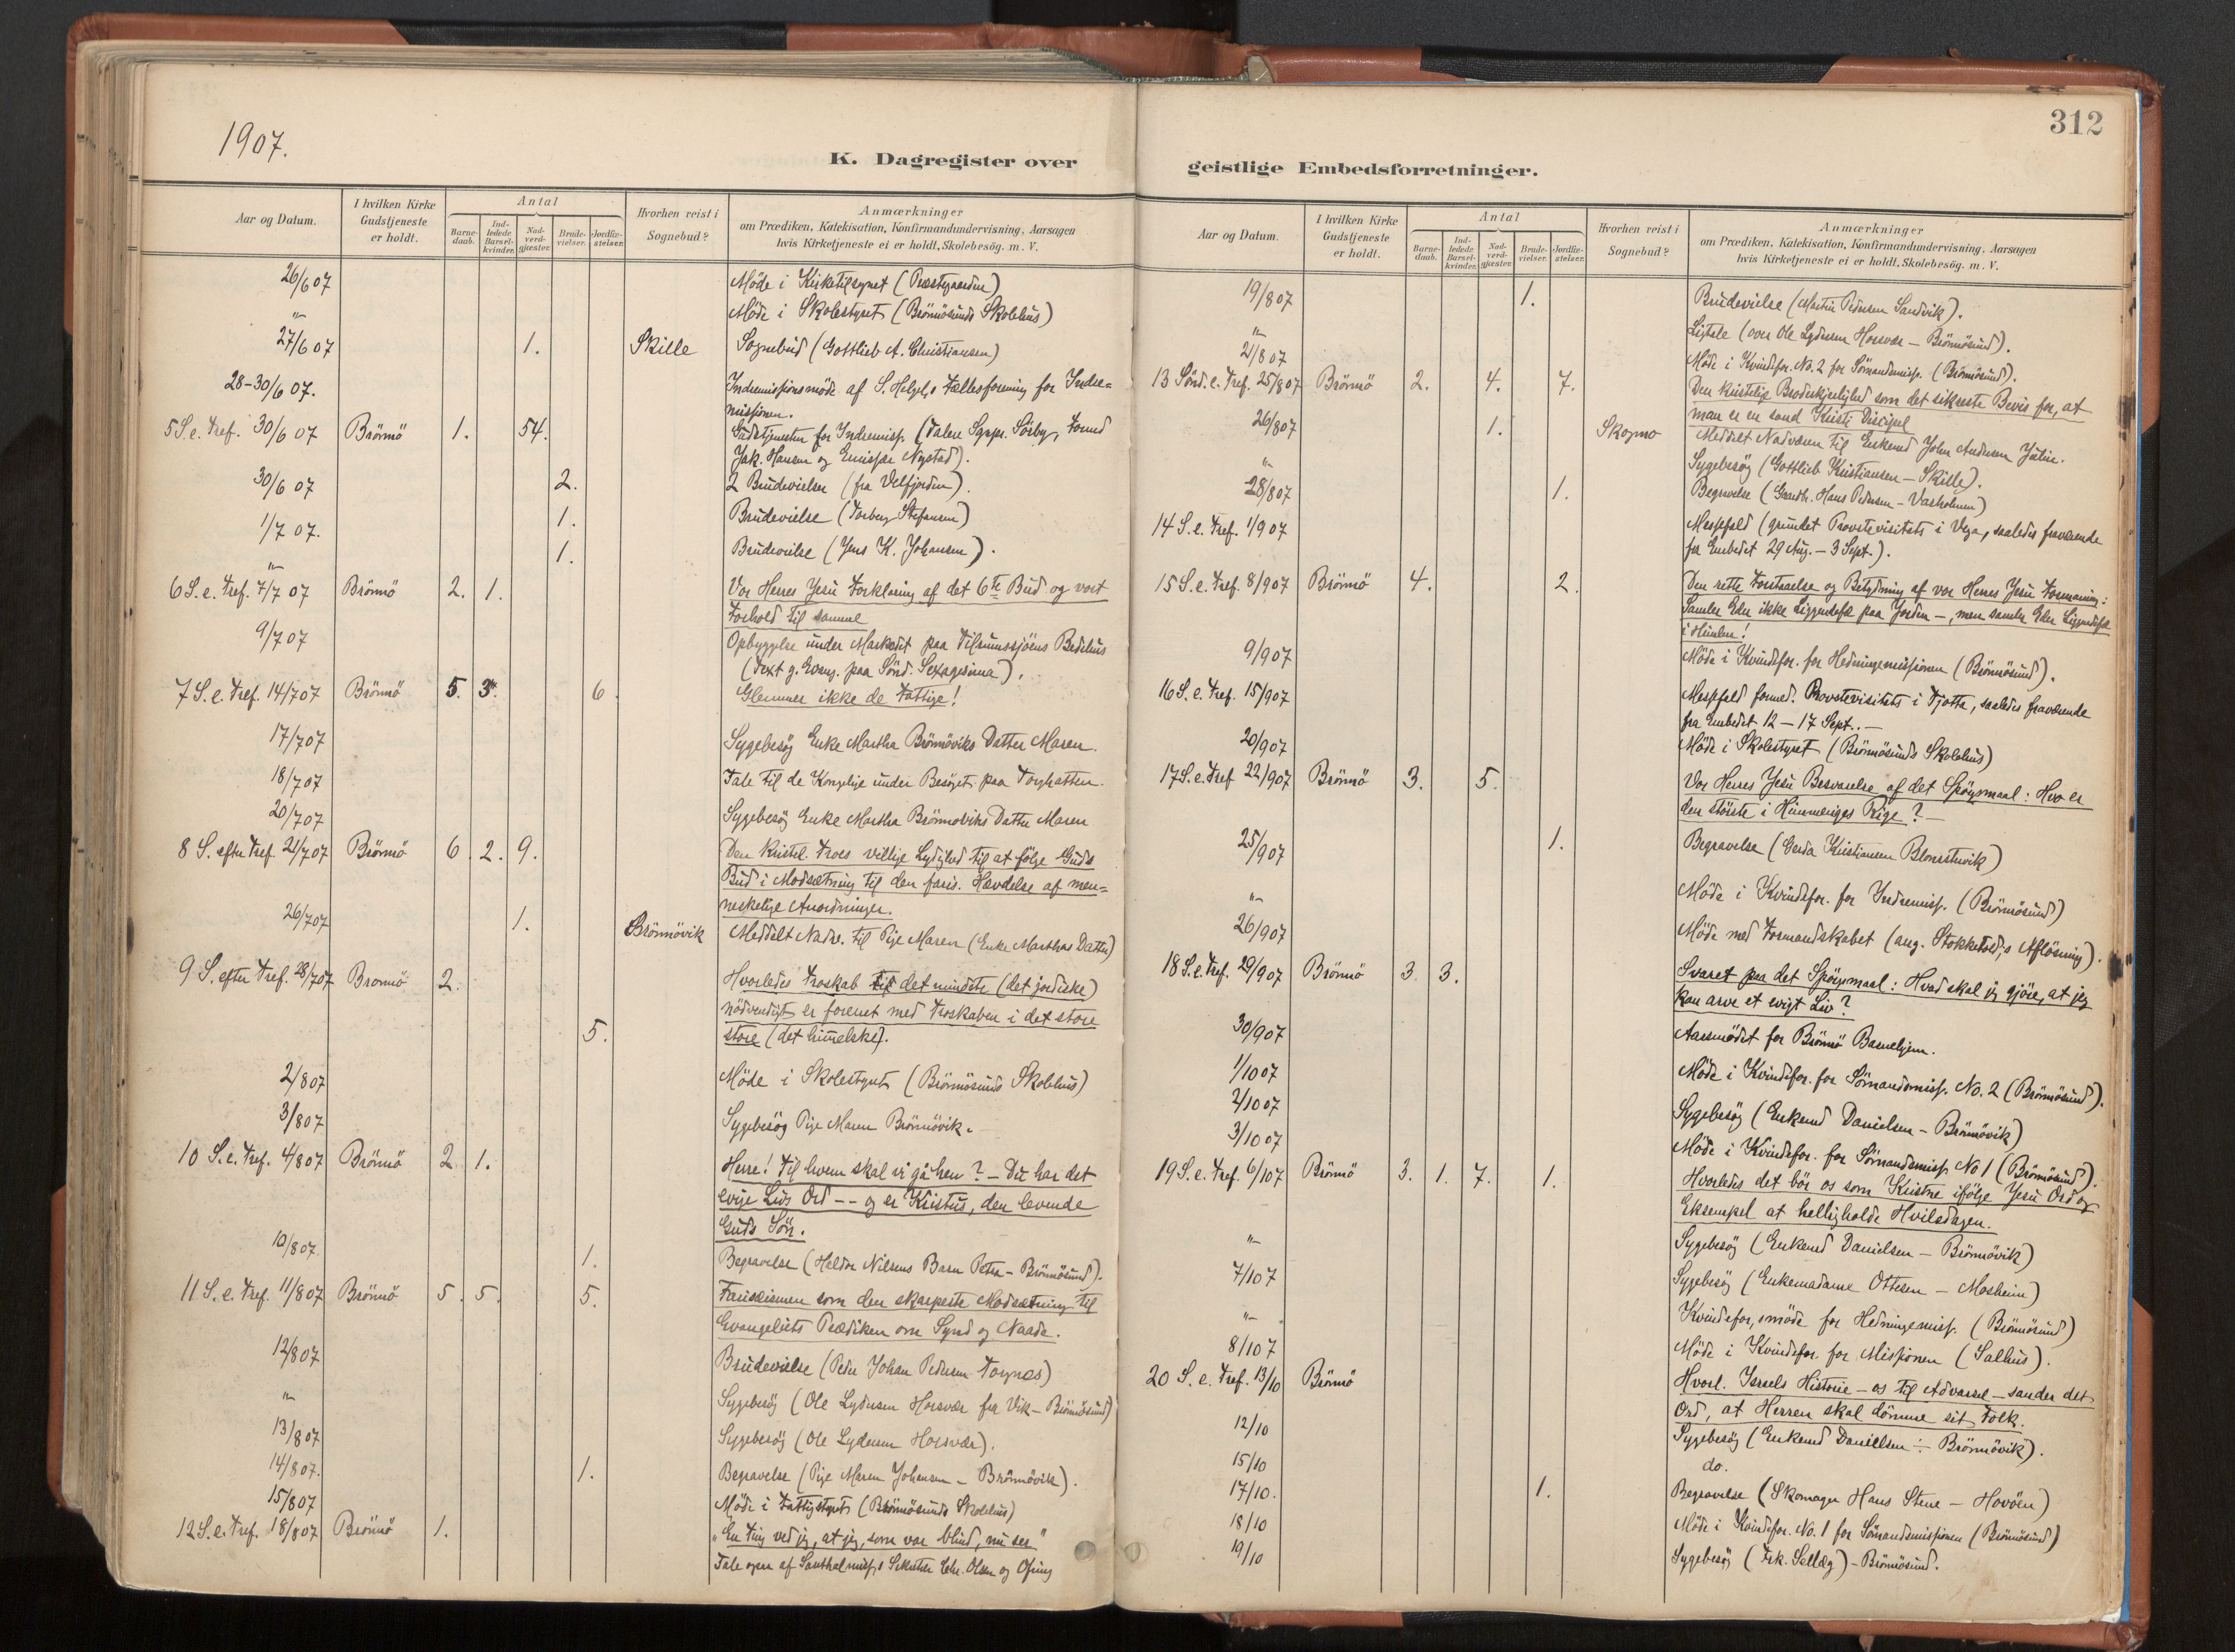 312
1907.
K. Dagregister over geistlige Embedsforretninger.
Aar og Datum.
I hvilken Kirke Gudstjeneste er holdt.
Antal
Barne-daab.
Ind-ledede Barsel-kvinder.
Nad-verd-gjæster.
Brude-vielser.
Jordfæ-stelser.
Hvorhen reist i Sognebud?
Anmærkninger
om Prædiken, Katekisation, Konfirmandundervisning, Aarsagen
hvis Kirketjeneste ei er holdt, Skolebesög. m. V.
26/6 07 Möde i Kirketilsynet (Præstegaarden)
" Möde i Skolestyret (Brönnösunds Skolehus)
27/6 07 1. Skille Sognebud (Gottlieb A. Christiansen)
28-30/6 07. Indremissionsmöde af S. Helgel,s Fællesforening for Indre=
missionen.
5 S. e. Tref. 30/6 07 Brönnö 1. 54. Gudstjenesten for Indremiss. (Talere Sgpr. Sörby, Formd
Jak. Hansen og Emissær Nystad).
30/6 07 2. 2 Brudevielser (fra Velfjorden).
1/7 07. 1. Brudevielse (Torberg Stefansen)
" 1. Brudevielse (Jens K. Johansen).
6 S. e. Tref. 7/7 07 Brönnö 2. 1. Vor Herres Jesu Forklaring af det 6te Bud og vort
Forhold til samme
9/7 07 Opbyggelse under Markedet paa Tilrumssjöens Bedehus
(Text g. Evang. paa Sönd. Sexagesima).
7 S. e. Tref. 14/7 07 Brönnö 5. 3. 6. Glemmer ikke de Fattige!
17/7 07 Sygebesög Enke Martha Brönnöviks Datter Maren.
18/7 07 Tale til de Kongelige under Besöget paa Torghatten.
20/7 07 Sygebesög Enke Martha Brönnöviks Datter Maren
8 S. efter Tref. 21/7 07 Brönnö 6. 2. 9. Den kristel. Troes villige Lydighed til at fölge Guds
Bud i Modsætning til den faris. Hævdelse af men=
neskelige Anordninger.
26/7 07 1. Brönnövik Meddelt Nadv. til Pige Maren (Enke Marthas Datter)
9 S. efter Tref. 28/7 07 Brönnö 2. Hvorledes Troskab til det mindste (det jordiske)
nödvendigt er forenet med Troskaben i det store
5. store (det himmelske).
2/8 07 Möde i Skolestyret (Brönnösunds Skolehus)
3/8 07 Sygebesög Pige Maren Brönnövik.
10 S. e. Tref. 4/8 07 Brönnö 2. 1. Herre! Til hvem skal vi gå hen? – Du har det
evige Livs Ord -- og er Kristus, den levende
Guds Sön.
10/8 07. 1. Begravelse (Haldor Nilsens Barn Petra – Brönnösund).
11 S. e. Tref. 11/8 07 Brönnö 5. 5. 5. Farisæismen som den skarpeste Modsætning til
Evangeliets Prædiken om Synd og Naade.
12/8 07 Brudevielse (Peder Johan Pedersen Torgnes)
" Sygebesög (Ole Lydersen Horsvær fra Vik – Brönnösund)
13/8 07 Sygebesög (Ole Lydersen Horsvær).
14/8 07. 1. Begravelse (Pige Maren Johansen – Brönnövik).
15/8 07 Möde i Fattigstyret (Brönnösunds Skolehus)
12 S. e. Tref. 18/8 07 Brönnö 1. "En Ting ved jeg, at jeg, som var blind, nu ser"
Tale ogsaa af Santhalmiss,s Sekretær Chr. Olsen og
Aar og Datum.
I hvilken Kirke Gudstjeneste er holdt.
Antal
Barne-daab.
Ind-ledede Barsel-kvinder.
Nad-verd-gjæster.
Brude-vielser.
Jordfæ-stelser.
Hvorhen reist i Sognebud?
Anmærkninger
om Prædiken, Katekisation, Konfirmandundervisning, Aarsagen
hvis Kirketjeneste ei er holdt, Skolebesög. m. V.
19/8 07 1. Brudevielse (Martin Pedersen Sandvik).
" Ligtale (over Ole Lydersen Horsvær – Brönnösund).
21/8 07 Möde i Kvindefor. No. 2 for Sömandsmiss. (Brönnösund).
13 Sönd. e. Tref. 25/8 07 Brönnö 2. 4. 7. Den kristelige Broderkjærlighed som det sikreste Bevis for, at
man er en sand Kristi Discipel
26/8 07 1. Skogmo Meddelt Nadveren til Enkemd John Andersen
" Sygebesög (Gottlieb Kristiansen – Skille).
28/8 07 1. Begravelse (Gaardb. Hans Pedersen – Vasholmen)
14 S. e. Tref. 1/9 07 Messfald (grundet Provstevisitats i Vega, saaledes fraværende
fra Embedet 29 Aug. – 3 Sept.).
15 S. e. Tref. 8/9 07 Brönnö 4. 2. Den rette Forstaaelse og Betydning af vor Herres Jesu Formaning:
Samler Eder ikke Liggendefæ paa Jorden –, men samler Eder Liggendefæ
i Himlen!
9/9 07 Möde i Kvindefor. for Hedningemissionen (Brönnösund).
16 S. e. Tref. 15/9 07 Messfald formed. Provstevisitats i Tjötta, saaledes fraværende
fra Embedet 12 – 17 Sept. –
20/9 07 Möde i Skolestyret (Brönnösunds Skolehus)
17 S. e. Tref 22/9 07 Brönnö 3. 5. Vor Herres Jesu Besvarelse af det Spörgsmaal: Hvo er
den störste i Himmeriges Rige? –
25/9 07 1. Begravelse (Gerda Kristiansen Blomstervik)
" Möde i Kvindefor. for Indremiss. (Brönnösund)
26/9 07 Möde med Formandskabet (ang. Stokketold,s Aflösning).
18 S. e. Tref. 29/9 07 Brönnö 3. 3. Svaret paa det Spörgsmaal: Hvad skal jeg gjöre, at jeg
kan arve et evigt Liv?
30/9 07 Aarsmödet for Brönnö Barnehjem.
1/10 07 Möde i Kvindefor. for Sömandsmiss. No. 2 (Brönnösund).
2/10 07 Sygebesög (Enkemd Danielsen – Brönnövik)
3/10 07 Möde i Kvindefor. for Sömandsmiss. No 1 (Brönnösund).
19 S. e. Tref. 6/10 7 Brönnö 3. 1. 7. 1. Hvorledes det bör os som Kristne ifölge Jesu Ord og
Eksempel at helligholde Hviledagen.
" Sygebesög (Enkemd Danielsen – Brönnövik)
7/10 7 Sygebesög (Enkemadame Ottesen – Mosheim)
" Kvindefor,smöde for Hedningemiss. (Brönnösund)
8/10 7 Möde i Kvindefor. for Missionen (Salhus).
20 S. e. Tref. 13/10 Brönnö Hvorl. Israels Historie – os til Advarsel – sander det
Ord, at Herren skal dömme sit Folk.
12/10 Sygebesög (Enkemd Danielsen – Brönnövik).
15/10 do.
17/10. 1. Begravelse (Skomager Hans Stene – Havöen)
18/10 Möde i Kvindefor. No. 1 for Sömandsmissionen (Brönnösund)
19/10 Sygebesög (Frk. Selläg) – Brönnösund.